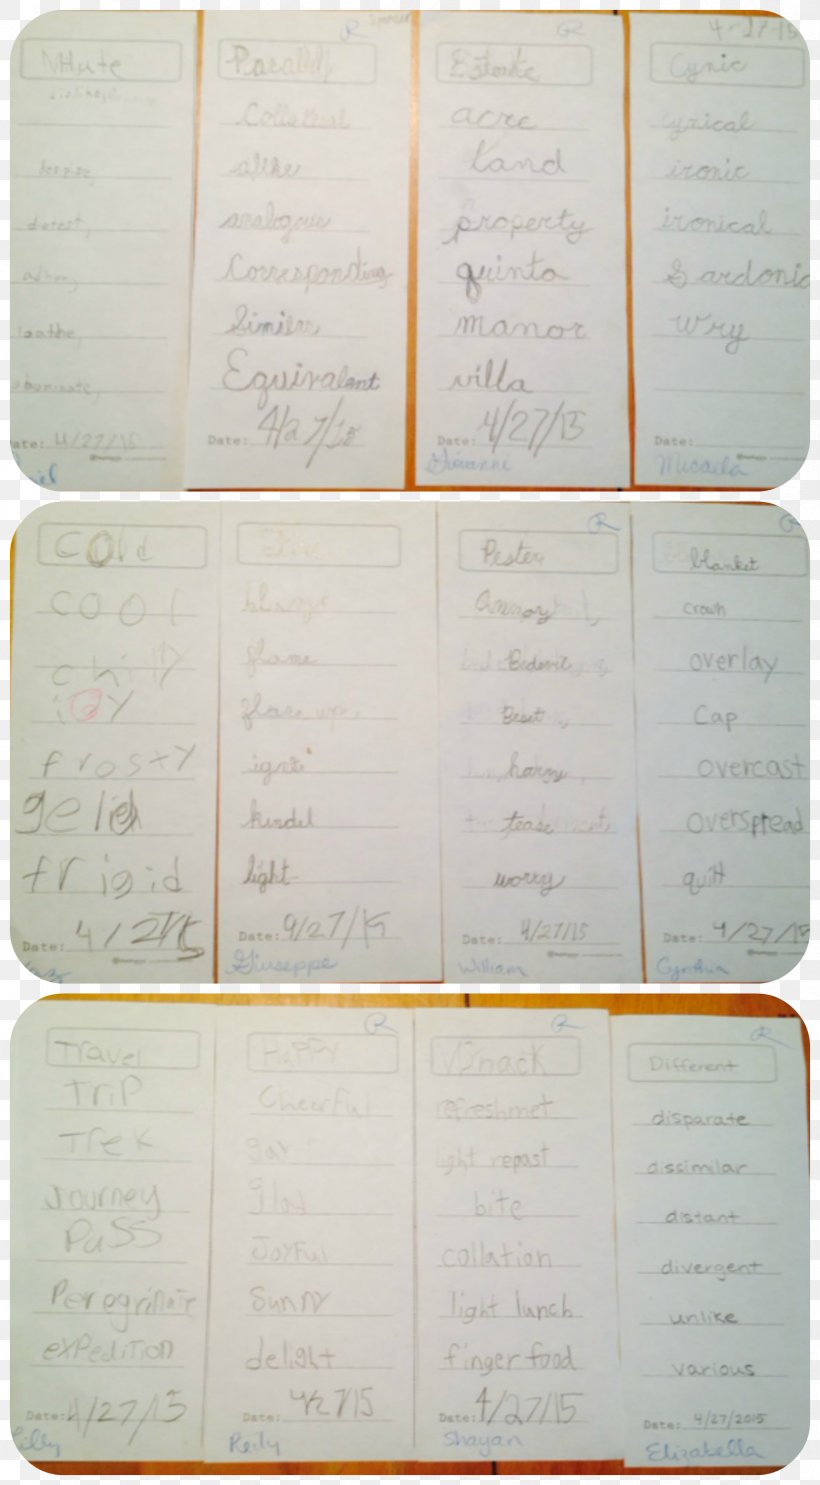 despise,
detest,
loathe,
Date: 4/27/15
Collateral
alike
analogous
Corresponding
Similar
Equivalent
Date: 4/27/15
R
Estate
acre
Land
property
quinta
manor
villa
Date: 4/27/15
Giovanni
4-27-15
Cynic
cynical
ironic
ironical
Sardonic
Wry
Date:
Micaela
Cold
cool
chilly
icy
frosty
gelid
frigid
Date: 4/27/15
flame
kindel
light
Date: 4/27/15
Giuseppe
R
Pester
Annoy
Bedevil
Beset
harry
tease
worry
Date: 4/27/15
William
R
blanket
crown
overlay
Cap
overcast
overspread
quilt
Date: 4/27/15
Cynthia
Travel
Trip
Trek
Journey
PaSS
Peregrinate
exPediTion
Date: 4/27/15
R
HaPPY
Cheerful
glad
Joyful
Sunny
delight
Date: 4/27/15
Reily
R
Snack
refreshmet
light repast
bite
collation
light lunch
finger food
Date: 4/27/15
Shayan
R
Different
disparate
dissimilar
distant
divergent
unlike
various
Date: 4/27/2015
Elizabella